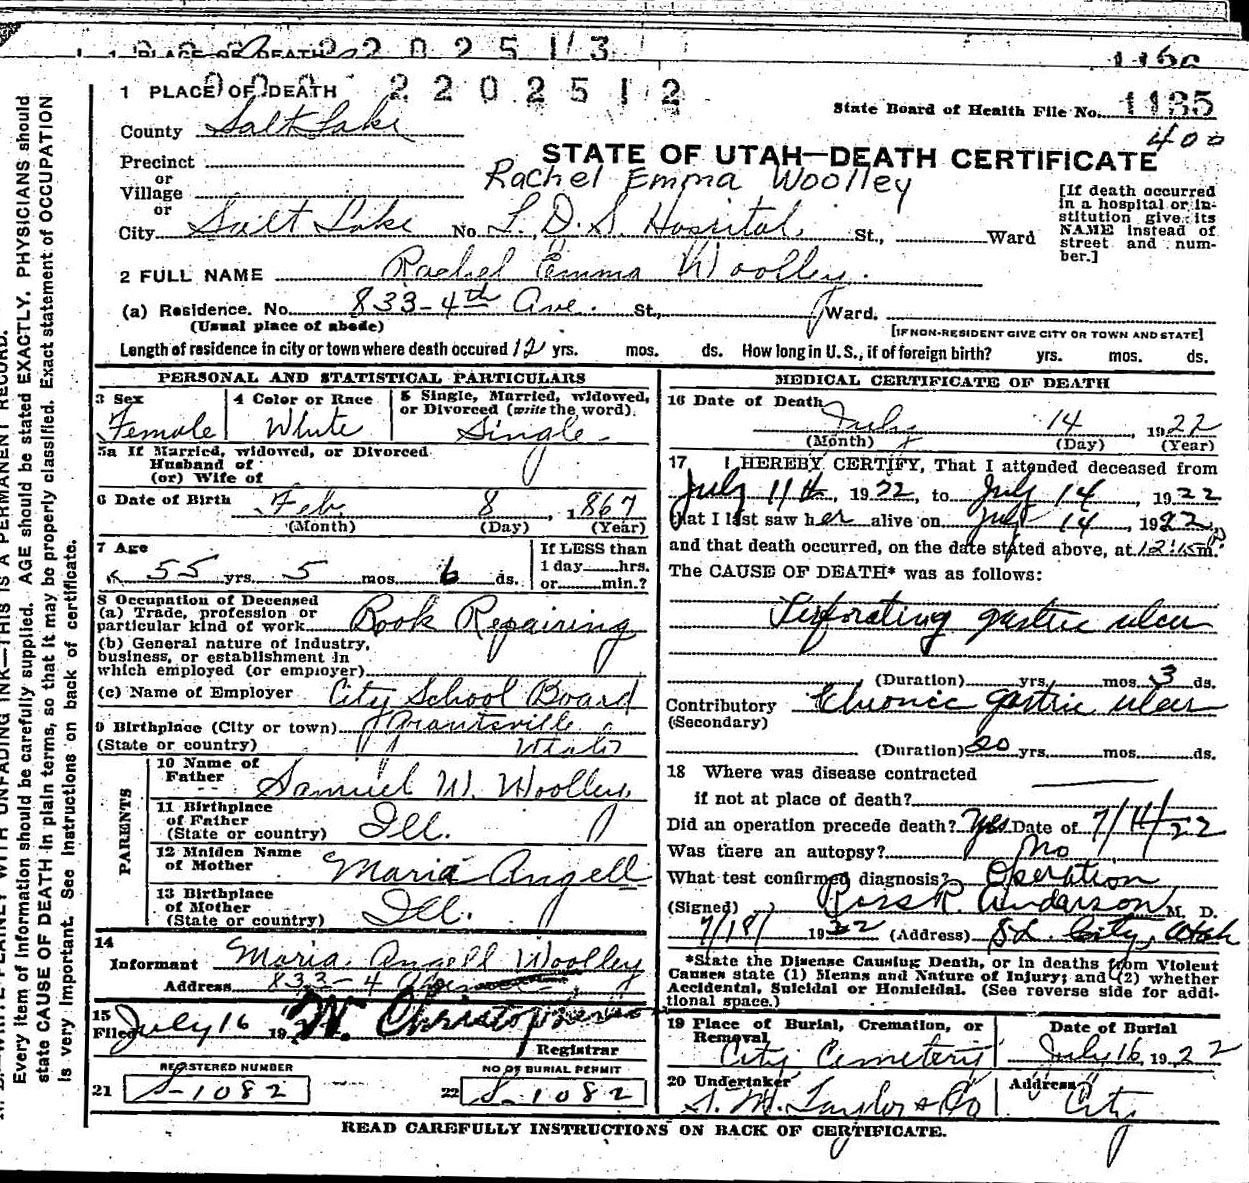 2202513
1 PLACE OF DEATH 2202512
State Board of Health File No. 1135
400
County Salt Lake
STATE OF UTAH—DEATH CERTIFICATE
Rachel Emma Woolley
Precinct
or
Village
or
City Salt Lake No. L. D. S. Hospital, St., Ward
[If death occurred
in a hospital or in-
stitution give its
NAME instead of
street and num-
ber.]
2 FULL NAME Rachel Emma Woolley.
(a) Residence. No. 833-4th Ave. St., Ward.
(Usual place of abode)
[IF NON-RESIDENT GIVE CITY OR TOWN AND STATE]
Length of residence in city or town where death occured 12 yrs. mos. ds. How long in U. S., if of foreign birth? yrs. mos. ds.
PERSONAL AND STATISTICAL PARTICULARS
3 Sex
Female
4 Color or Race
White
5 Single, Married, widowed,
or Divorced (write the word).
Single
5a If Married, widowed, or Divorced
Husband of
(or) Wife of
6 Date of Birth Feb 8, 1867
(Month) (Day) (Year)
7 Age
55 yrs. 5 mos. 6 ds.
If LESS than
1 day hrs.
or min.?
8 Occupation of Deceased
(a) Trade, profession or
particular kind of work Book Repairing
(b) General nature of industry,
business, or establishment in
which employed (or employer)
(c) Name of Employer City School Board
9 Birthplace (City or town) Grantsville
(State or country) Utah
PARENTS
10 Name of
Father Samuel W. Woolley
11 Birthplace
of Father
(State or country) Ill.
12 Maiden Name
of Mother Maria Angell
13 Birthplace
of Mother
(State or country) Ill.
14
Informant Maria Angell Woolley
Address 833-4
15
Filed July 16 19
Registrar
REGISTERED NUMBER
21 S-1082
NO OF BURIAL PERMIT
22 S-1082
MEDICAL CERTIFICATE OF DEATH
16 Date of Death
July 14, 1922
(Month) (Day) (Year)
17 I HEREBY CERTIFY, That I attended deceased from
July 11th, 1922, to July 14, 1922
that I last saw her alive on July 14, 1922,
and that death occurred, on the date stated above, at 12:15 P m.
The CAUSE OF DEATH* was as follows:
Perforating gastric ulcer
(Duration) yrs. mos. 3 ds.
Contributory Chronic gastric ulcer
(Secondary)
(Duration) 20 yrs. mos. ds.
18 Where was disease contracted
if not at place of death?
Did an operation precede death? Yes Date of 7/11/22
Was there an autopsy? No
What test confirmed diagnosis? Operation
(Signed) Ross R. Anderson M. D.
7/18/ 1922 (Address) S L. City, Utah
*State the Disease Causing Death, or in deaths from Violent
Causes state (1) Means and Nature of Injury; and (2) whether
Accidental, Suicidal or Homicidal. (See reverse side for addi-
tional space.)
19 Place of Burial, Cremation, or
Removal
City Cemetery
Date of Burial
July 16, 1922
20 Undertaker
S. M. Taylor & Co
Address
City
READ CAREFULLY INSTRUCTIONS ON BACK OF CERTIFICATE.
WRITE PLAINLY WITH UNFADING INK—THIS IS A PERMANENT RECORD.
Every item of information should be carefully supplied. AGE should be stated EXACTLY. PHYSICIANS should
state CAUSE OF DEATH in plain terms, so that it may be properly classified. Exact statement of OCCUPATION
is very important. See Instructions on back of certificate.